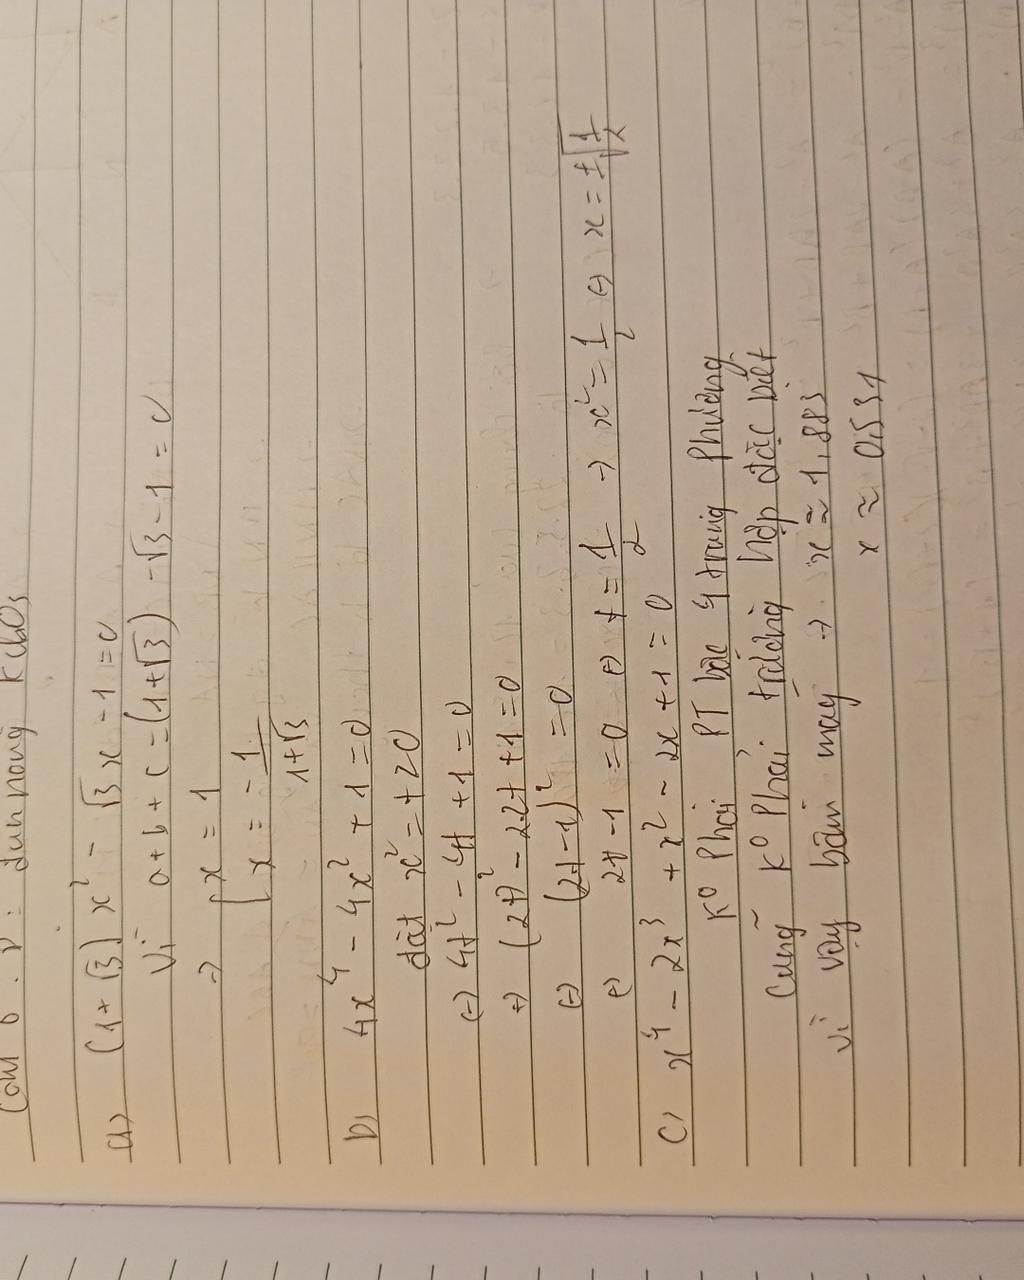 a) (1+√3) x² - √3 x - 1 = 0
Vì a + b + c = (1+√3) - √3 - 1 = 0
→ [ x = 1
[ x = - 1/(1+√3)
b) 4x⁴ - 4x² + 1 = 0
đặt x² = t ≥ 0
(=) 4t² - 4t + 1 = 0
(=) (2t)² - 2.2t + 1 = 0
(=) (2t - 1)² = 0
(=) 2t - 1 = 0 (=) t = 1/2 → x² = 1/2 (=) x = ±√(1/2)
c) x⁴ - 2x³ + x² - 2x + 1 = 0
K⁰ Phải PT bậc 4 trùng Phương
Cũng K⁰ Phải trường hợp đặc biệt
Vì vậy bấm máy → x ≈ 1,883
x ≈ 0,531